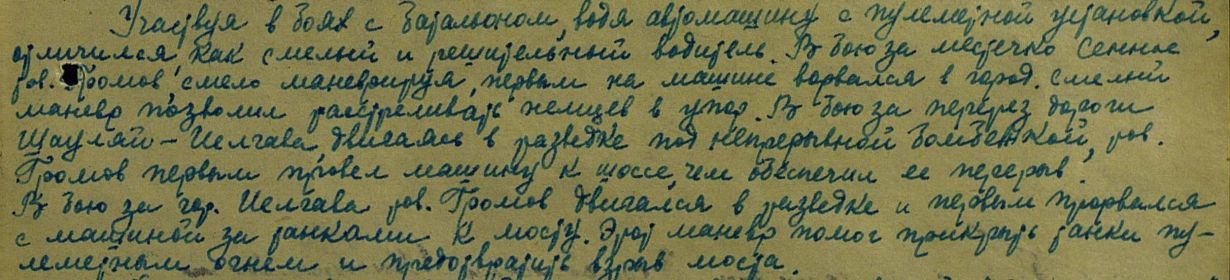 Участвуя в боях с батальоном, водя автомашину с пулеметной установкой,
отличился, как смелый и решительный водитель. В бою за местечко Сенное
тов. Громов, смело маневрируя, первым на машине ворвался в город. Смелый
маневр позволил расстреливать немцев в упор. В бою за перерез дороги
Шауляй - Иелгава двигаясь в разведке под непрерывной бомбежкой, тов.
Громов первым провел машину к шоссе, чем обеспечил ее перерыв.
В бою за гор. Иелгава тов. Громов двигался в разведке и первым прорвался
с машиной за танками к мосту. Этот маневр помог прикрыть танки пу-
леметным огнем и предотвратить взрыв моста.